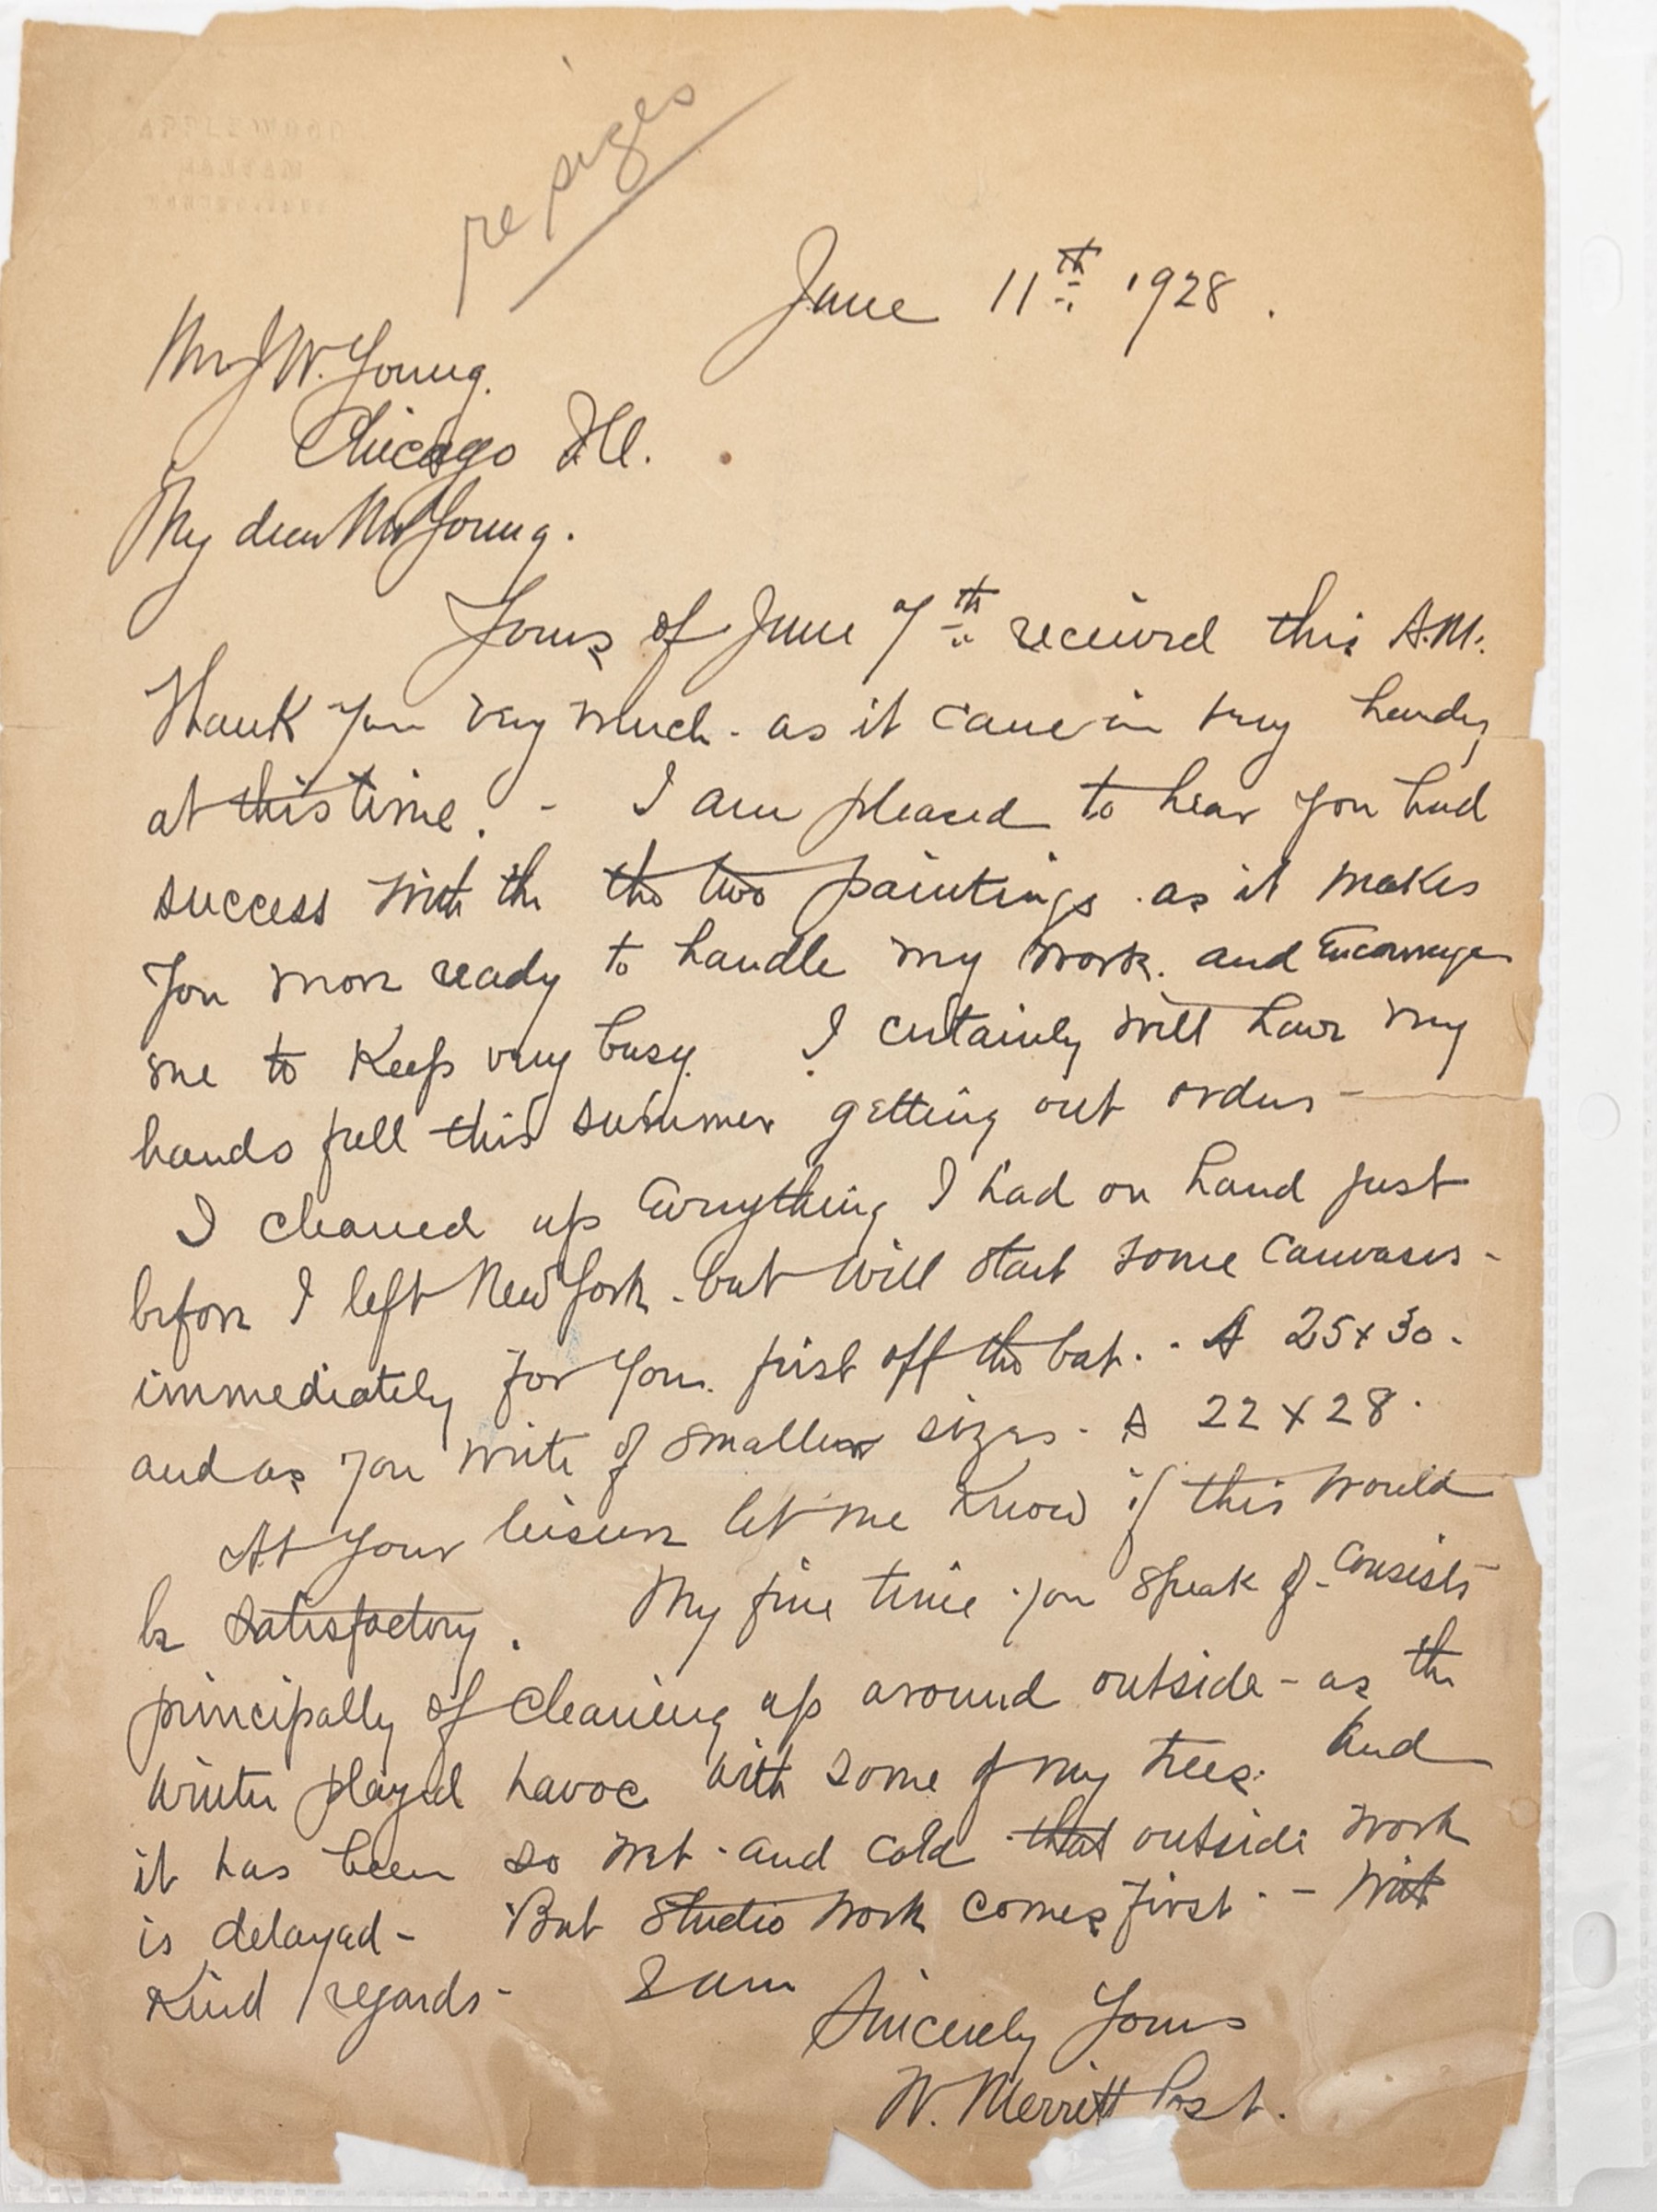 re sizes
June 11th 1928.
Mr J. W. Young.
Chicago Ill.
My dear Mr Young.
Yours of June 7th received this A.M.
Thank you very much - as it came in very handy
at this time. - I am pleased to hear you had
success with the the two paintings. as it makes
you more ready to handle my work. and encourages
me to keep very busy. I certainly will have my
hands full this summer getting out orders -
I cleaned up everything I had on hand just
before I left New York - but will start some canvases -
immediately for you. first off the bat. - A 25 x 30 -
and as you write of smaller sizes - A 22 x 28.
At your leisure let me know if this would
be satisfactory. My fine time you speak of - consists
principally of cleaning up around outside - as the
winter played havoc with some of my trees. And
it has been so wet - and cold that outside work
is delayed - But studio work comes first - with
kind regards - I am
Sincerely Yours
W. Merritt Post.